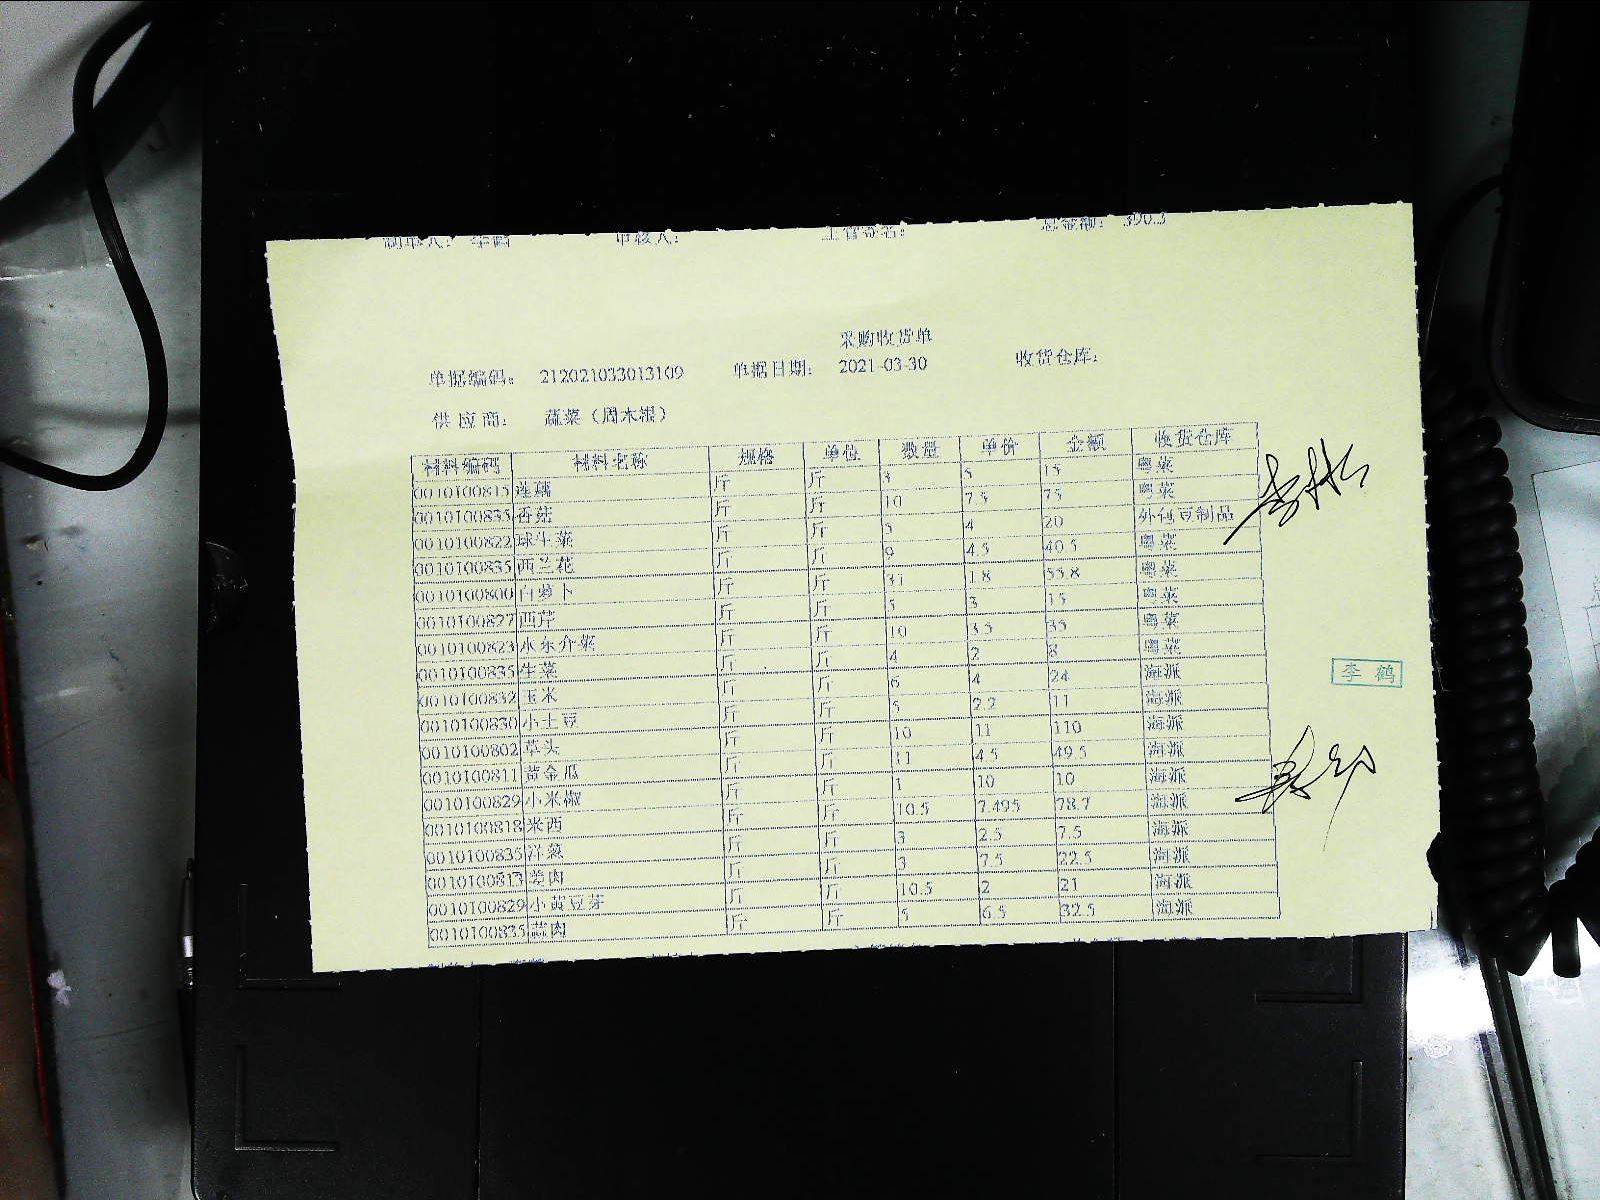 制单人： 李鹤 审核人： 主管签名： 总金额： 390.3
采购收货单
单据编码： 212021033013109 单据日期： 2021-03-30 收货仓库：
供 应 商： 蔬菜（周木根）
材料编码 材料名称 规格 单位 数量 单价 金额 收货仓库
0010100815 莲藕 斤 斤 3 5 15 粤菜
0010100835 香菇 斤 斤 10 7.5 75 粤菜
0010100822 球生菜 斤 斤 5 4 20 外包豆制品
0010100835 西兰花 斤 斤 9 4.5 40.5 粤菜
0010100800 白萝卜 斤 斤 31 1.8 55.8 粤菜
0010100827 西芹 斤 斤 5 3 15 粤菜
0010100823 水东介菜 斤 斤 10 3.5 35 粤菜
0010100835 生菜 斤 斤 4 2 8 粤菜
0010100832 玉米 斤 斤 6 4 24 海派
0010100830 小土豆 斤 斤 5 2.2 11 海派
0010100802 草头 斤 斤 10 11 110 海派
0010100811 黄金瓜 斤 斤 11 4.5 49.5 海派
0010100829 小米椒 斤 斤 1 10 10 海派
0010100818 米西 斤 斤 10.5 7.495 78.7 海派
0010100835 洋葱 斤 斤 3 2.5 7.5 海派
0010100813 姜肉 斤 斤 3 7.5 22.5 海派
0010100829 小黄豆芽 斤 斤 10.5 2 21 海派
0010100835 蒜肉 斤 斤 5 6.5 32.5 海派
李 鹤